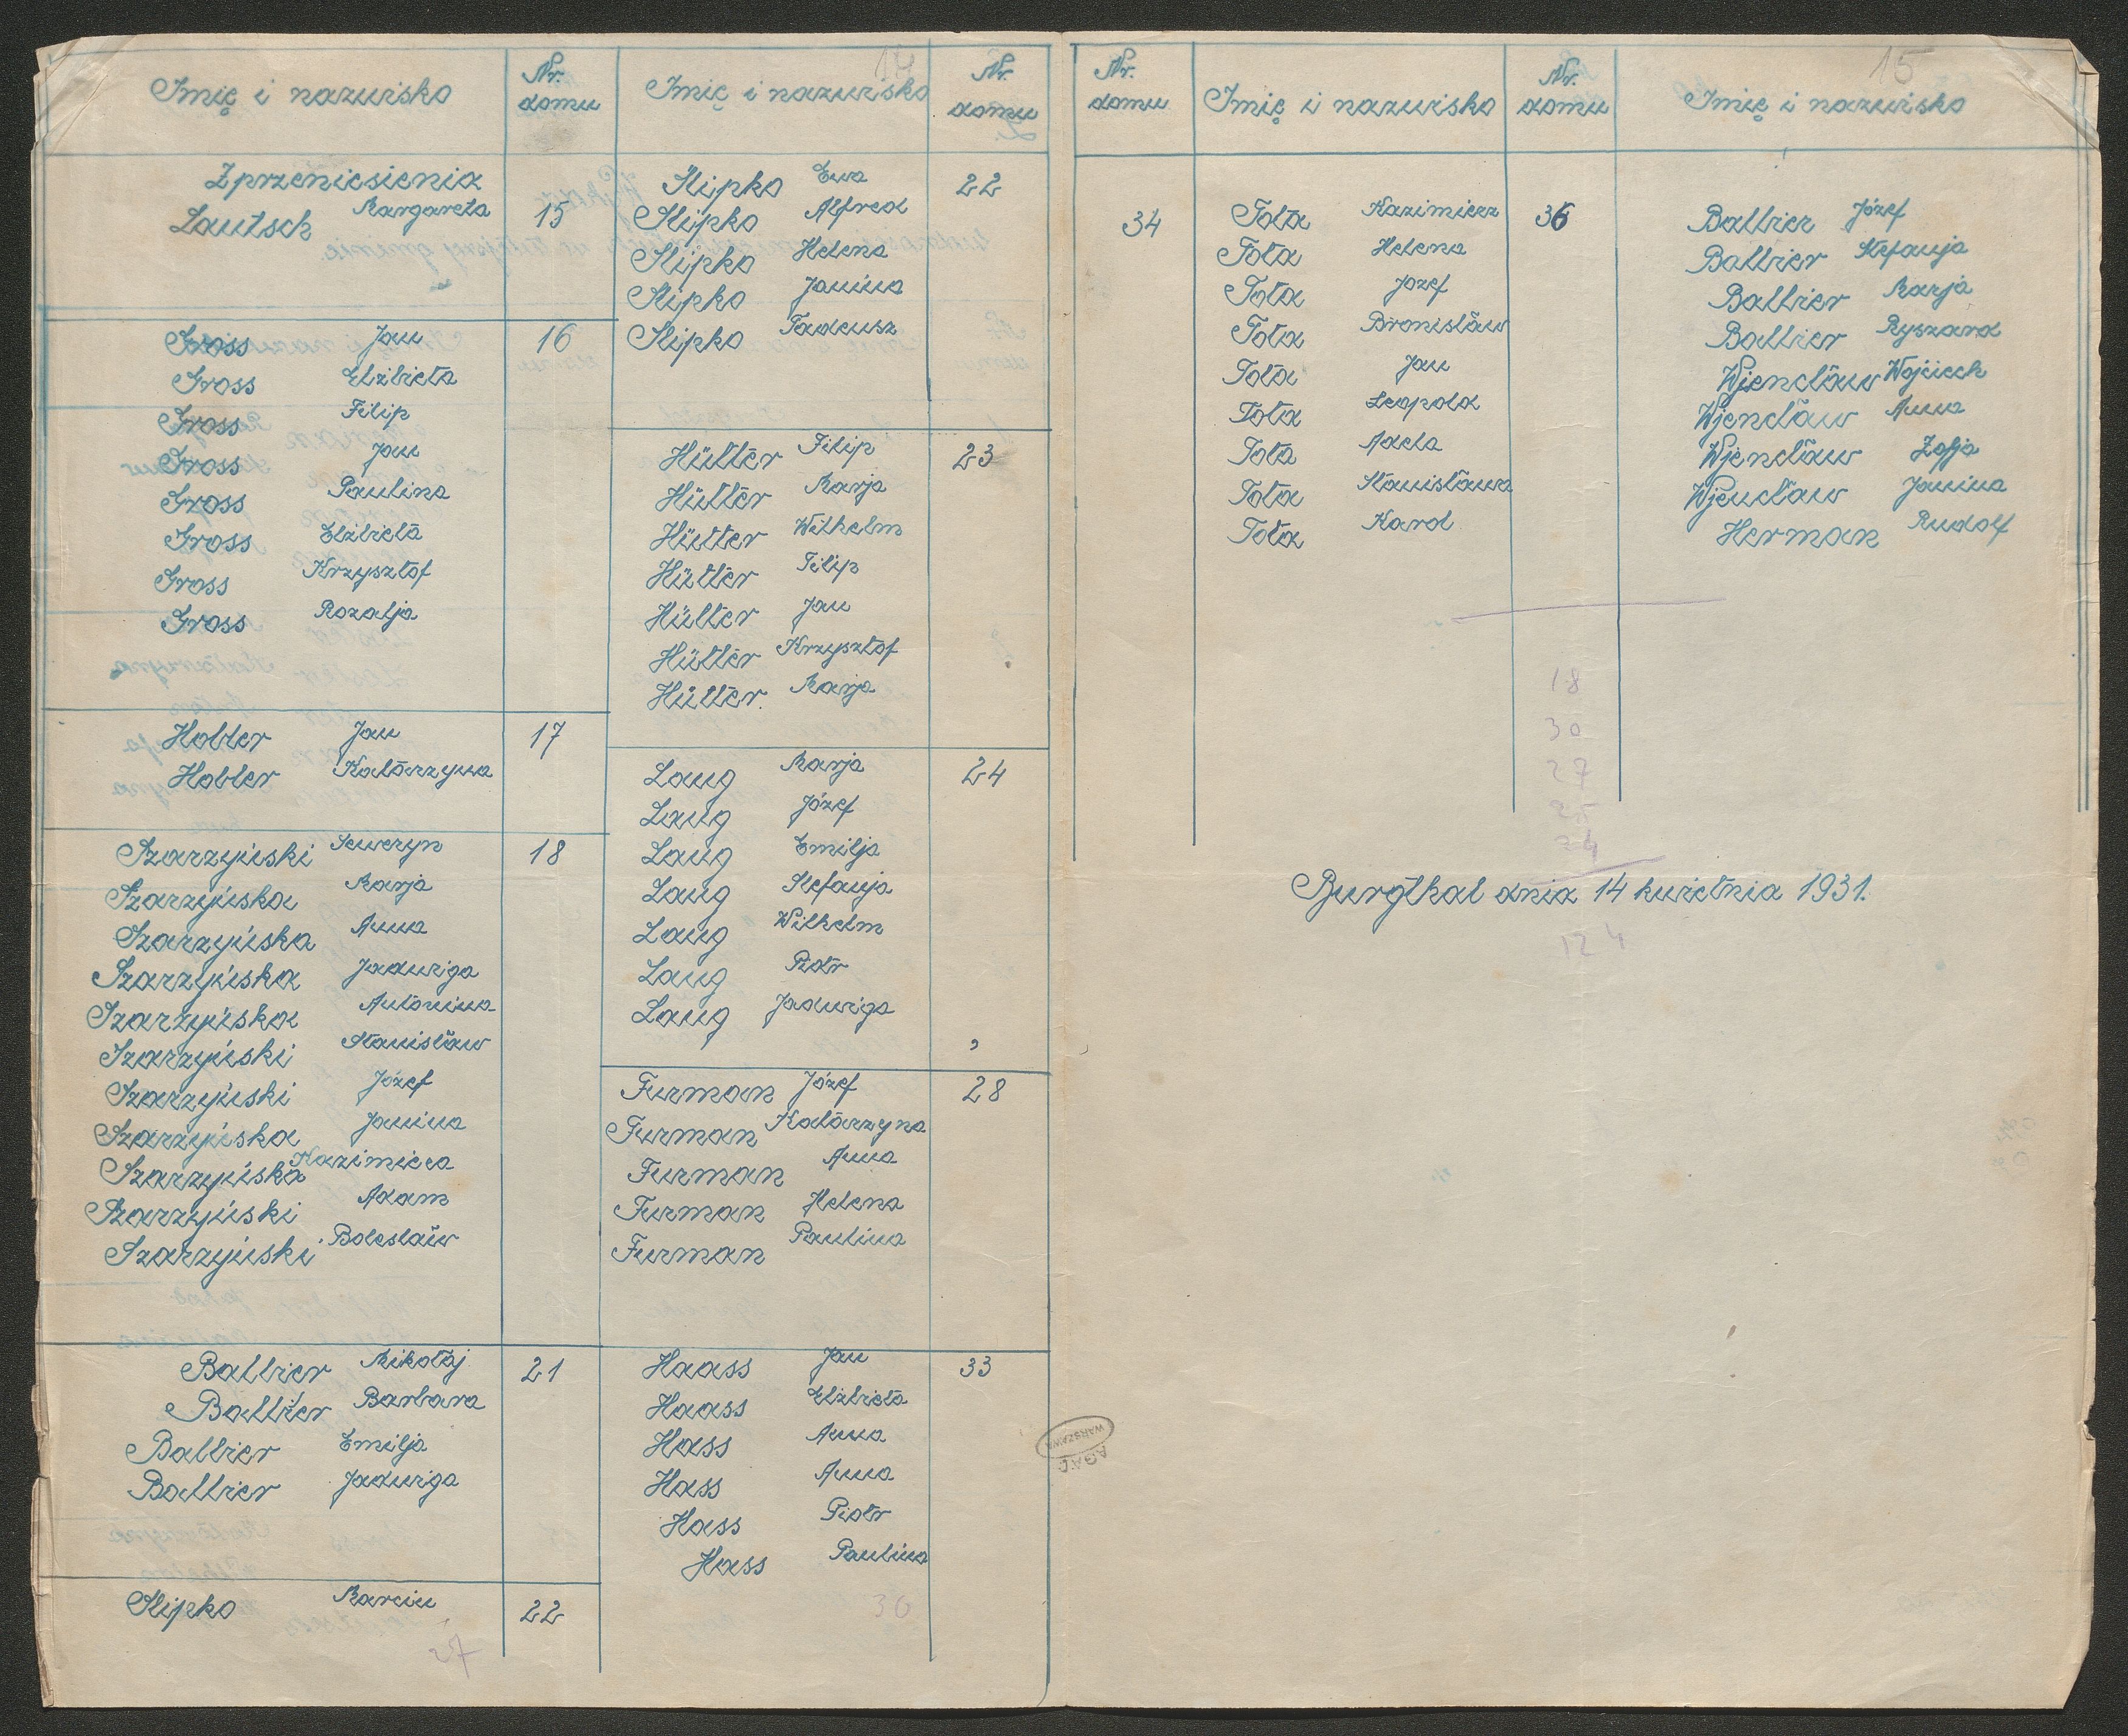 14
Imię i nazwisko Nr. domu
Z przeniesienia
Lautsch Margareta 15
Gross Jan 16
Gross Elżbieta
Gross Filip
Gross Jan
Gross Paulina
Gross Elżbieta
Gross Krzysztof
Gross Rozalja
Hobler Jan 17
Hobler Katarzyna
Szarzyński Seweryn 18
Szarzyńska Marja
Szarzyńska Anna
Szarzyńska Jadwiga
Szarzyńska Antonina
Szarzyński Stanisław
Szarzyński Józef
Szarzyńska Janina
Szarzyńska Kazimiera
Szarzyński Adam
Szarzyński Bolesław
Ballier Mikołaj 21
Ballier Barbara
Ballier Emilja
Ballier Jadwiga
Slipko Marcin 22
27
Imię i nazwisko Nr. domu
Slipko Ewa 22
Slipko Alfred
Slipko Helena
Slipko Janina
Slipko Tadeusz
Hütter Filip 23
Hütter Marja
Hütter Wilhelm
Hütter Filip
Hütter Jan
Hütter Krzysztof
Hütter Marja
Lang Marja 24
Lang Józef
Lang Emilja
Lang Stefanja
Lang Wilhelm
Lang Piotr
Lang Jadwiga
Furman Józef 28
Furman Katarzyna
Furman Anna
Furman Helena
Furman Paulina
Haass Jan 33
Haass Elżbieta
Hass Anna
Hass Anna
Hass Piotr
Hass Paulina
30
A.G.A.D.
WARSZAWA
15
Nr. domu Imię i nazwisko
34 Tota Kazimierz
Tota Helena
Tota Józef
Tota Bronisław
Tota Jan
Tota Leopold
Tota Adela
Tota Stanisława
Tota Karol
Nr. domu Imię i nazwisko
36 Ballier Józef
Ballier Stefanja
Ballier Marja
Ballier Ryszard
Wjencław Wojciech
Wjencław Anna
Wjencław Zofja
Wjencław Janina
Herman Rudolf
18
30
27
25
24
Burgthal dnia 14 kwietnia 1931.
124